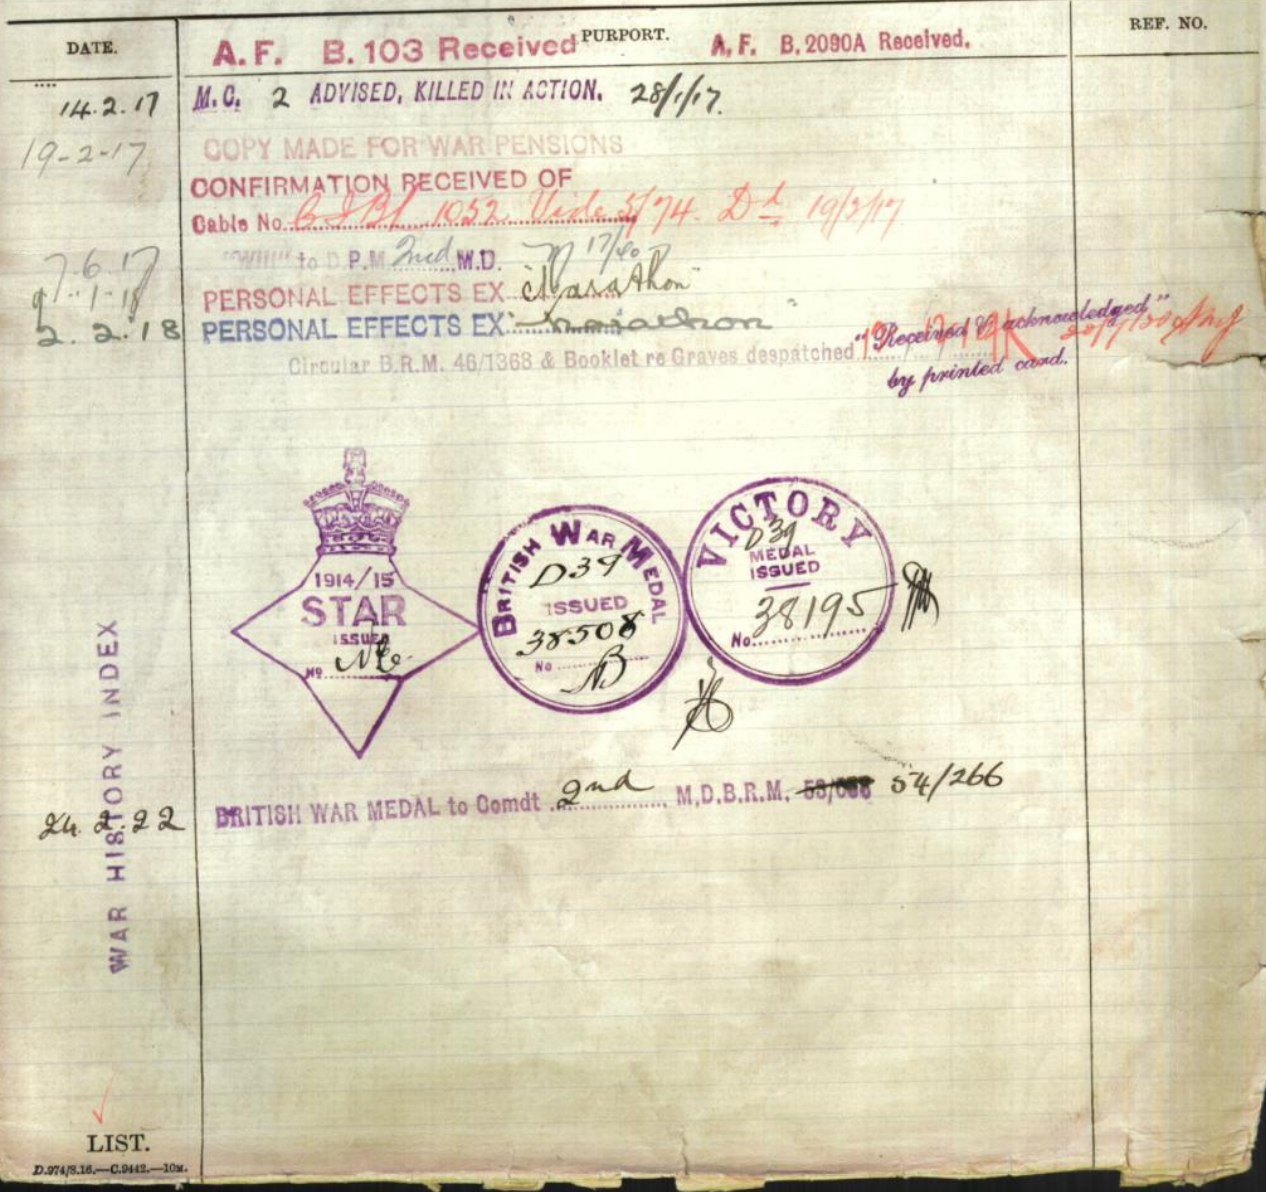 DATE. PURPORT. REF. NO.
A.F. B.103 Received A.F. B.2090A Received.
14.2.17 M.C. 2 ADVISED, KILLED IN ACTION. 28/1/17.
19-2-17 COPY MADE FOR WAR PENSIONS
CONFIRMATION RECEIVED OF
Cable No. 1052 Vide 5/74. Dd 19/3/17
7.6.17 "Will" to D.P.M. 2nd M.D. 17/40
9.1.18 PERSONAL EFFECTS EX "Marathon"
2.2.18 PERSONAL EFFECTS EX "Marathon"
Circular B.R.M. 46/1368 & Booklet re Graves despatched
"Received & acknowledged"
by printed card.
1914/15
STAR
ISSUED
No
BRITISH WAR MEDAL
D39
ISSUED
38508
No
VICTORY
D39
MEDAL
ISSUED
No. 38195
WAR HISTORY INDEX
24.2.22 BRITISH WAR MEDAL to Comdt 2nd M.D.B.R.M. 54/266
LIST.
D.974/8.16.—C.9442.—10M.